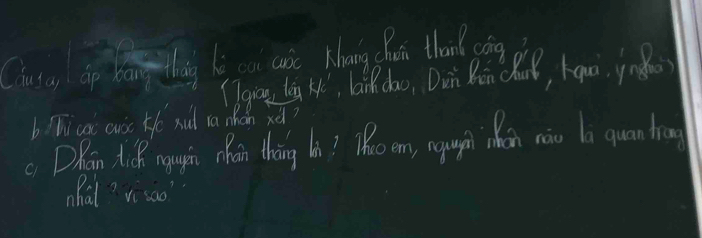 Câu 1a, Lập bảng thống kê các cuộc kháng chiến thành công ở
(Tgian, tên k/c, lãnh đạo, Diễn biến chính, kquả, ý nghĩa)
b. Từ các cuộc k/c rút ra nhận xét?
c, Phân tích nguyên nhân thắng lợi? Theo em, nguyên nhân nào là quan trọng
nhất? vì sao?